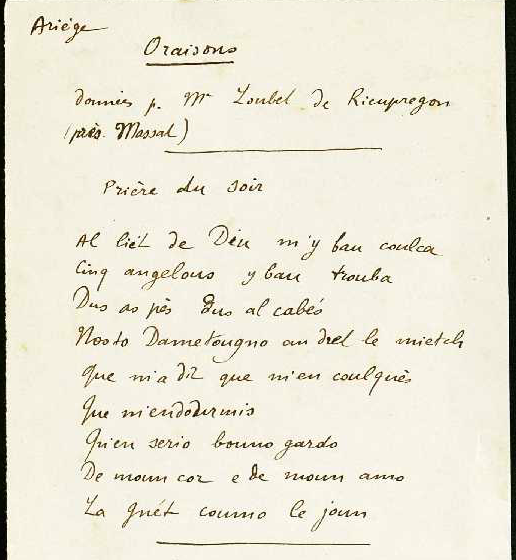 Ariége
Oraisons
données p. Mr Loubet de Rieupregon
(près Massat)
Prière du soir
Al liét de Diu m'y bau coulca
Cinq angelous y bau trouba
Dus as pès dus al cabés
Nosto Dame au drel le mietch
Que m'a dit que m'en coulqués
Que m'endodurmis
Qu'en serio bouno gardo
De moun cor e de moun amo
La nuét coumo le joun